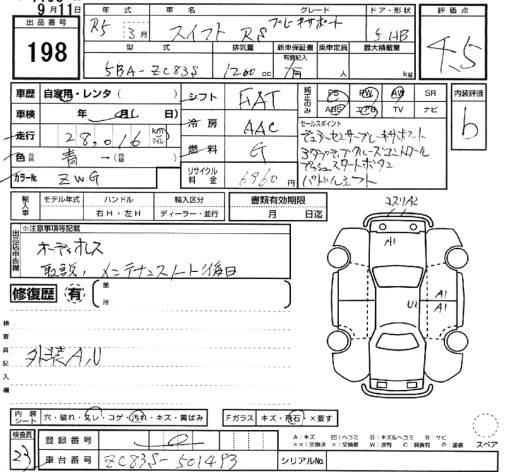 9月11日
出品番号
198
年式
R5 年 3月
グレード
スイフト RS
ドア・形状
5HB
評価点
4.5
型式
5BA-ZC83S
排気量
1200
新車保証書
有間記入
乗車定員
人
最大積載量
kg
車歴 自家用・レンタ (
シフト FAT
純正のみ
PS PW AW SR
ABS エアB TV ナビ
内装評価
b
車検 年 月( 日
冷房 AAC
セールスポイント
走行 28,016 km マイル
燃料 G
色 青
カラー№ ZWG
リサイクル料金 6,960 円
プッシュスタートボタン
パドルシフト
輸入車
モデル年式
ハンドル
右H・左H
輸入区分
ディーラー・並行
書類有効期限
月 日迄
※注意事項等記載
出品店申告欄
オーディオレス
取説、メンテナンスノート後日
修復歴 有
箇所
A1
A1
U1 A1
検査員記入欄
外装AU
内装シート 穴・破れ・汚し・コゲ・汚れ・キズ・黄ばみ
Fガラス キズ・飛石・×要す
スペア
検査員
23
登録番号
A:キズ 凹:ヘコミ B:キズ&ヘコミ S:サビ
車台番号 ZC83S-501493
シリアル№